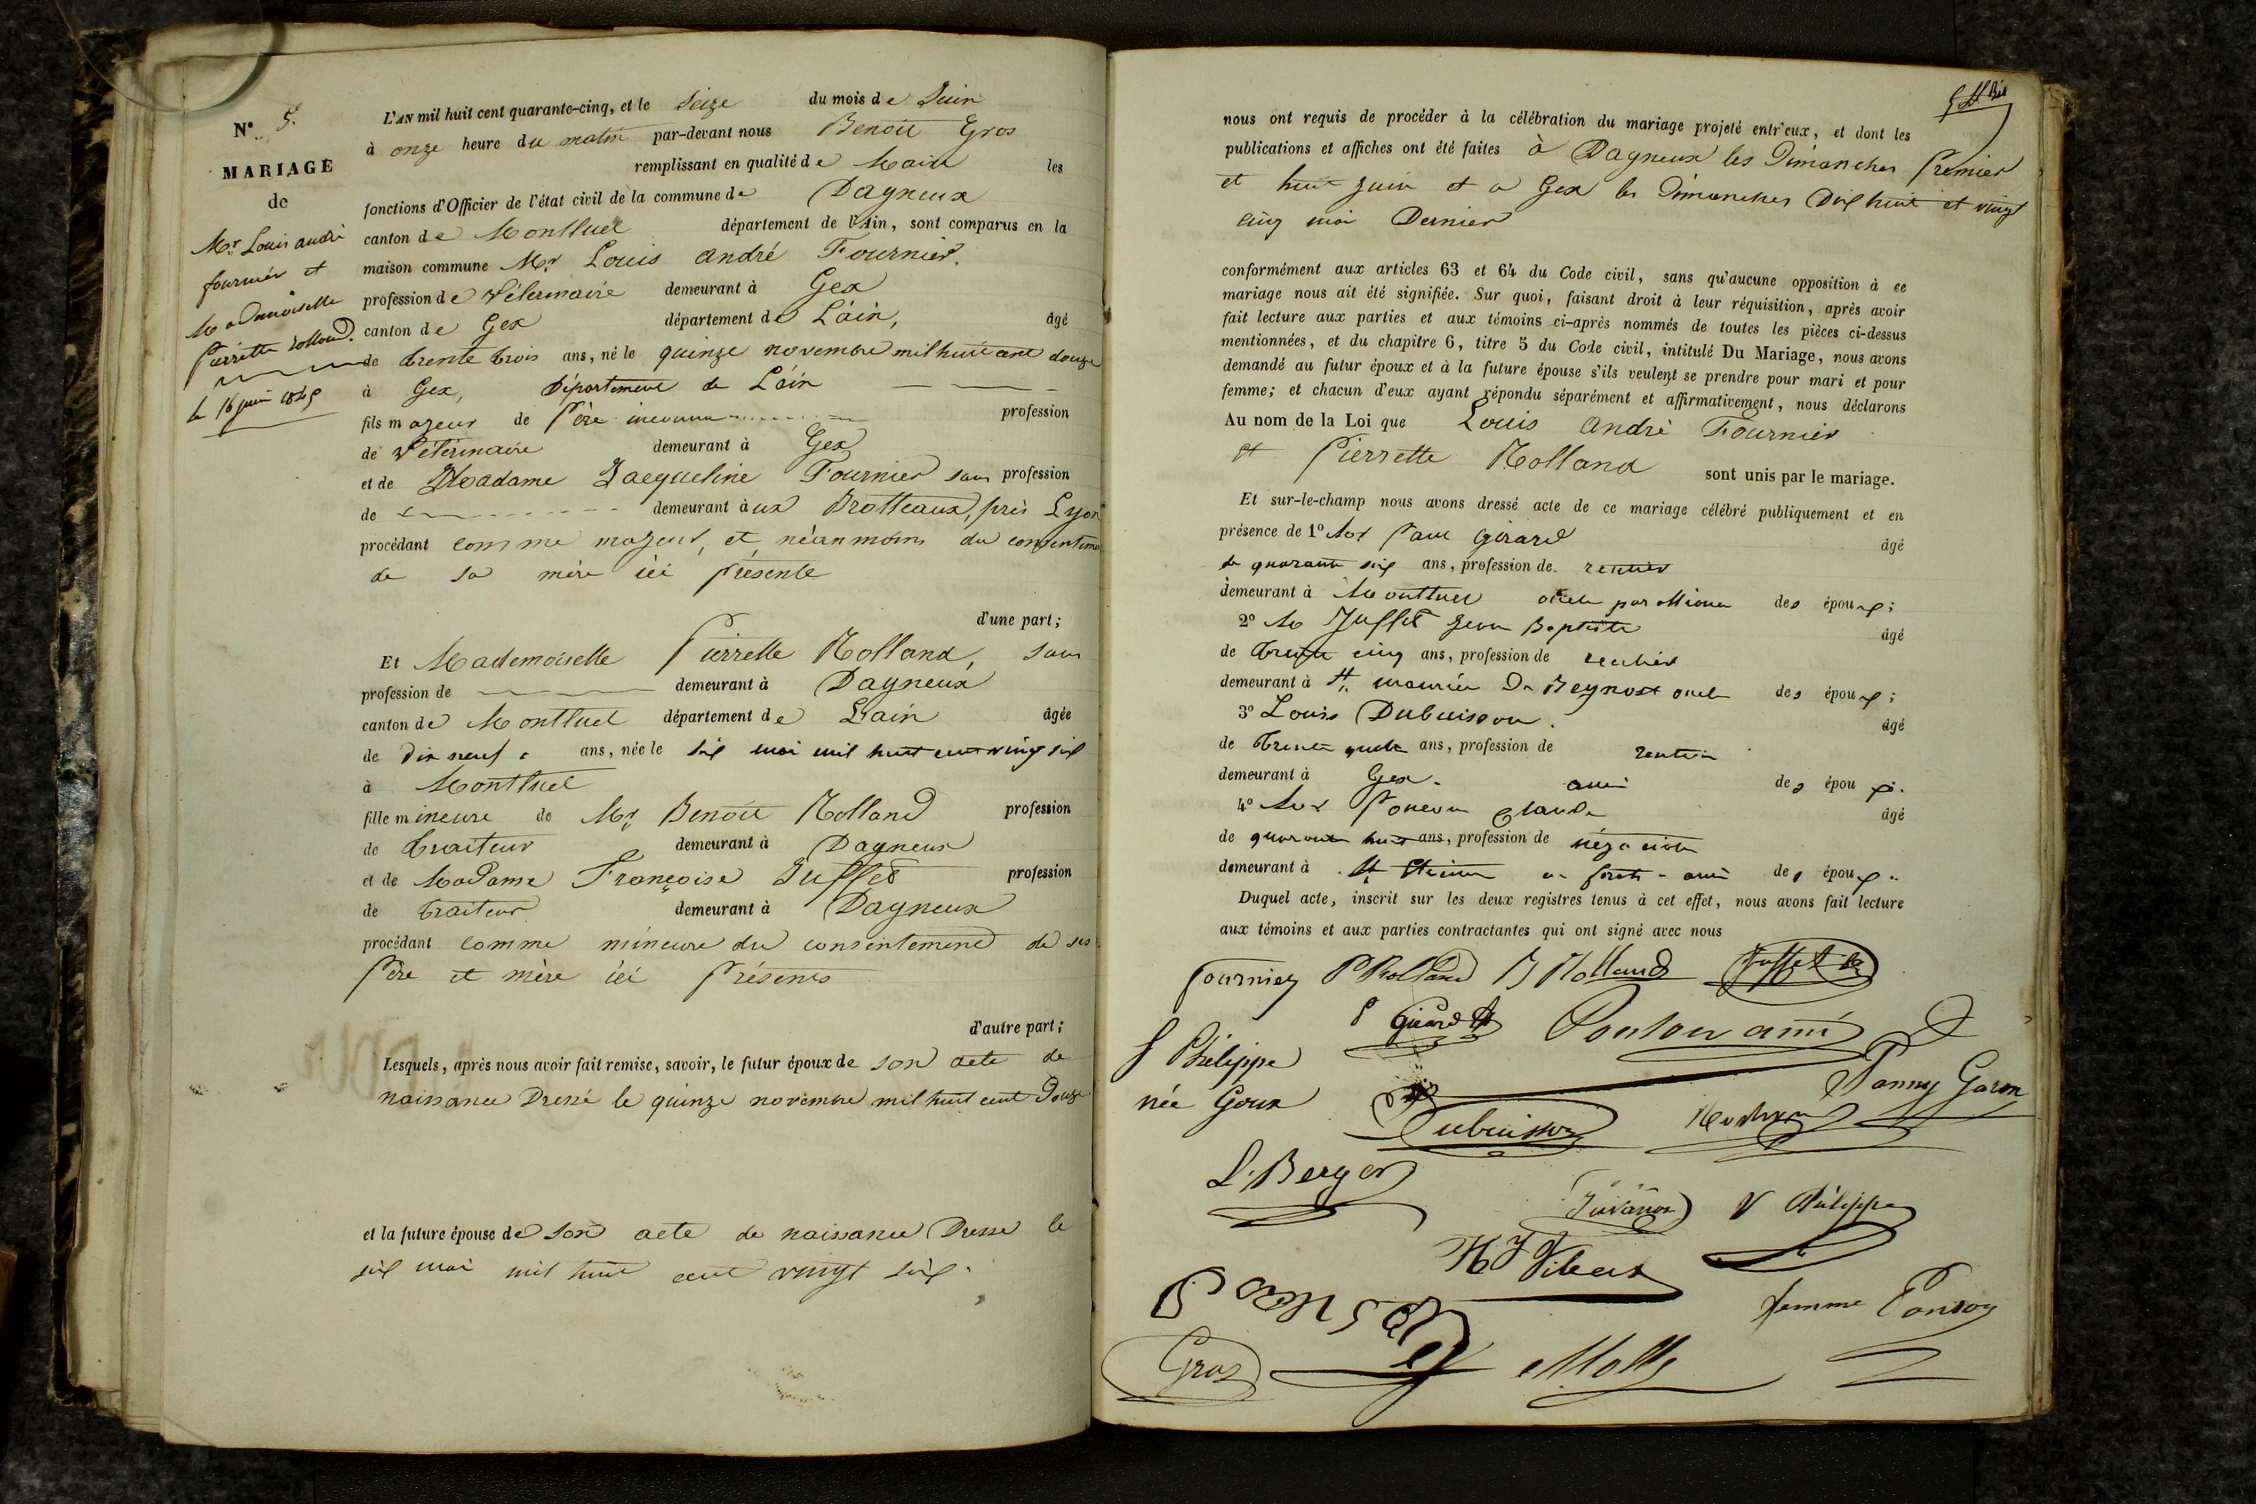 N° 5.
MARIAGE
de
Mr Louis andré
fournier et
Mademoiselle
Pierrette Rolland.
le 16 juin 1845
L'AN mil huit cent quarante-cinq, et le Seize du mois de Juin
à onze heure du matin par-devant nous Benoit Gros
remplissant en qualité de Maire les
fonctions d'Officier de l'état civil de la commune de Dagneux
canton de Montluel département de l'Ain, sont comparus en la
maison commune Mr Louis André Fournier.
profession de Véterinaire demeurant à Gex
canton de Gex département de L'ain, âgé
de trente trois ans, né le quinze novembre mil huit cent douze
à Gex, Département de L'ain
fils majeur de Père inconnu profession
de Véterinaire demeurant à Gex
et de Madame Jacqueline Fournier sans profession
de demeurant aux Brotteaux, près Lyon
procédant comme majeur, et néanmoins du consentement
de sa mère ici présente
d'une part;
Et Mademoiselle Pierrette Rolland, sans
profession de demeurant à Dagneux
canton de Montluel département de L'ain âgée
de dix neuf ans, née le six mai mil huit cent vingt six
à Montluel
fille mineure de Mr Benoit Rolland profession
de traiteur demeurant à Dagneux
et de Madame Françoise Juffet profession
de traiteur demeurant à Dagneux
procédant comme mineure du consentement de ses
Père et mère ici Présents
d'autre part;
Lesquels, après nous avoir fait remise, savoir, le futur époux de son acte de
naissance Dressé le quinze novembre mil huit cent Douze
et la future épouse de son acte de naissance Dressé le
six mai mil huit cent vingt six.
nous ont requis de procéder à la célébration du mariage projeté entr'eux, et dont les
publications et affiches ont été faites à Dagneux les Dimanches Premier
et huit Juin et a Gex les Dimanches Dix huit et vingt
cinq mai Dernier
conformément aux articles 63 et 64 du Code civil, sans qu'aucune opposition à ce
mariage nous ait été signifiée. Sur quoi, faisant droit à leur réquisition, après avoir
fait lecture aux parties et aux témoins ci-après nommés de toutes les pièces ci-dessus
mentionnées, et du chapitre 6, titre 5 du Code civil, intitulé Du Mariage, nous avons
demandé au futur époux et à la future épouse s'ils veulent se prendre pour mari et pour
femme; et chacun d'eux ayant répondu séparément et affirmativement, nous déclarons
Au nom de la Loi que Louis André Fournier
et Pierrette Rolland sont unis par le mariage.
Et sur-le-champ nous avons dressé acte de ce mariage célébré publiquement et en
présence de 1° Mr Paul Girard âgé
de quarante six ans, profession de rentier
demeurant à Montluel oncle par alliance des époux;
2° Mr Juffet Jean Baptiste âgé
de trente cinq ans, profession de rentier
demeurant à St. maurice De Beynost oncle des époux;
3° Louis Dubuisson. âgé
de trente quatre ans, profession de rentier
demeurant à Gex. ami des époux.
4° Mr Claude âgé
de quarante huit ans, profession de négociant
demeurant à St Etienne ami des époux.
Duquel acte, inscrit sur les deux registres tenus à cet effet, nous avons fait lecture
aux témoins et aux parties contractantes qui ont signé avec nous
fournier P Rolland B Rolland Juffet
P Girard Ponson ami
Philippe
née Goux
Dubuisson
Fanny Garon
L. Berger
V Philippe
femme Ponson
Gros